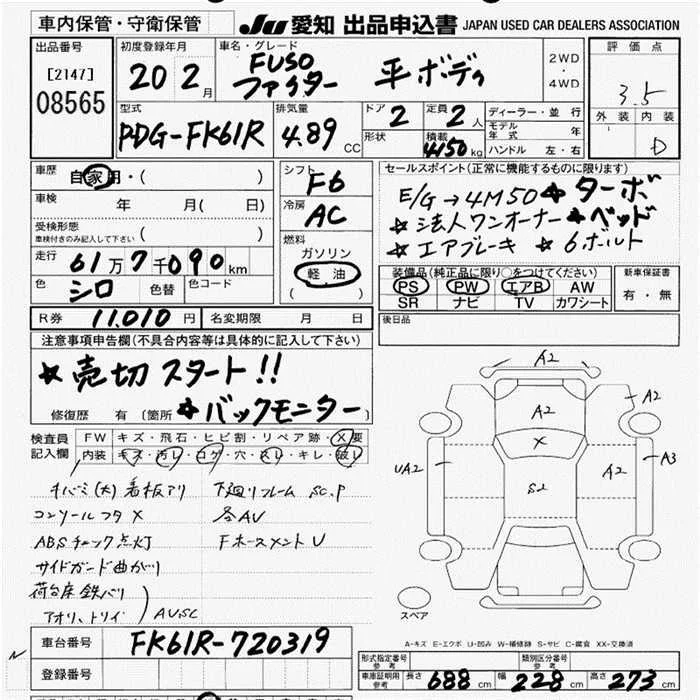 車内保管・守衛保管 JU 愛知 出品申込書 JAPAN USED CAR DEALERS ASSOCIATION
出品番号 初度登録年月 車名・グレード 評価点
[2147] 20 2月 FUSO 2WD
08565 ファイター 平ボディ ・ 4WD 3.5
型式 排気量 ドア 定員 ディーラー・並行 外装 内装
PDG-FK61R 4.89 CC 2 2人 モデル年式 年 D
形状 積載 4150 kg ハンドル 左・右
車歴 自家用・( ) シフト F6 セールスポイント(正常に機能するものに限ります)
車検 年 月( 日) 冷房 AC E/G→4M50 ★ターボ
受検形態 車検付きのみ記入して下さい ( ) 燃料 ★法人ワンオーナー ★ベッド
走行 61万7千090km ガソリン ★エアブレーキ ★6ボルト
色 シロ 色替 色コード 軽油 ( )
装備品(純正品に限り○をつけてください) 新車保証書
PS PW エアB AW 有・無
SR ナビ TV カワシート
R券 11,010円 名変期限 月 日 後日品
注意事項申告欄(不具合内容等は具体的に記入して下さい)
★売切スタート!!
修復歴 有 (箇所 ★バックモニター)
検査員記入欄 FW キズ・飛石・ヒビ割・リペア跡・X要
内装 キズ・汚レ・コゲ・穴・スレ・キレ・破レ
キバミ(大) 看板アリ 下廻リフレーム SC.P
コンソールフタ X 各AU
ABSチェック点灯 Fホースメント U
サイドガード曲がり
荷台床鉄バリ
アオリ、トリイ ) AU.SC
A2
A2 A2
X
UA2 S2 A2 A3
スペア
A-キズ E-エクボ U-凹み W-補修跡 S-サビ C-腐食 XX-交換済
車台番号 FK61R-720319
登録番号
形式指定番号 参考 類別区分番号 参考
車庫証明用 参考 長さ 688 cm 幅 228 cm 高さ 273 cm